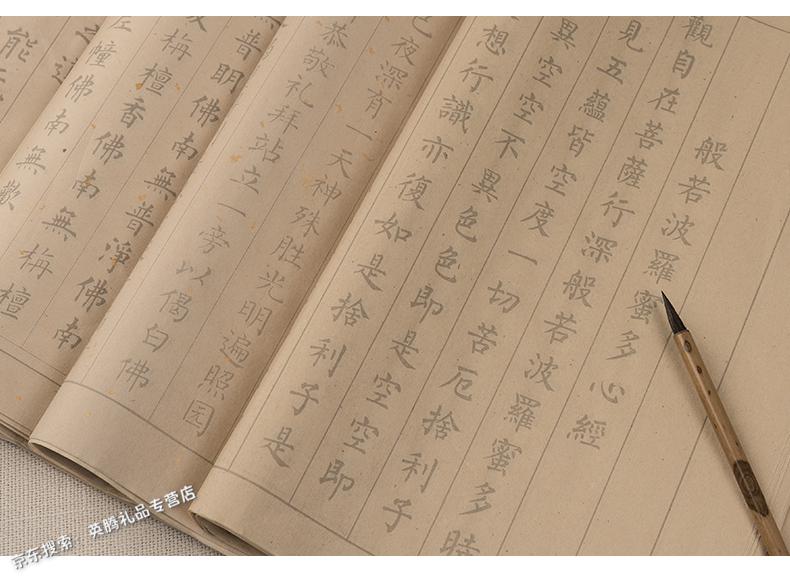 般若波羅蜜多心經
觀自在菩薩行深般若波羅蜜多時
見五蘊皆空度一切苦厄捨利子
異空空不異色色即是空空即
想行識亦復如是捨利子是
色夜深有一天神殊胜光明遍照园
恭敬礼拜站立一旁以偈白佛
無普明佛南無普淨佛南
栴檀香佛南無栴檀
幢佛南無歡
能
京东搜索：英腾礼品专营店